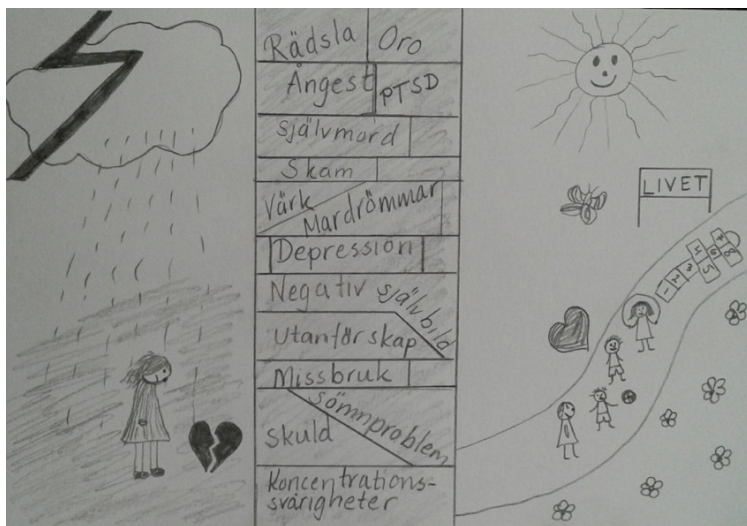 Rädsla
Oro
Ångest
PTSD
självmord
Skam
Värk
Mardrömmar
Depression
Negativ självbild
Utanförskap
Missbruk
Sömnproblem
Skuld
Koncentrations-
svårigheter
LIVET
1 2 3 4 5 6 7 8